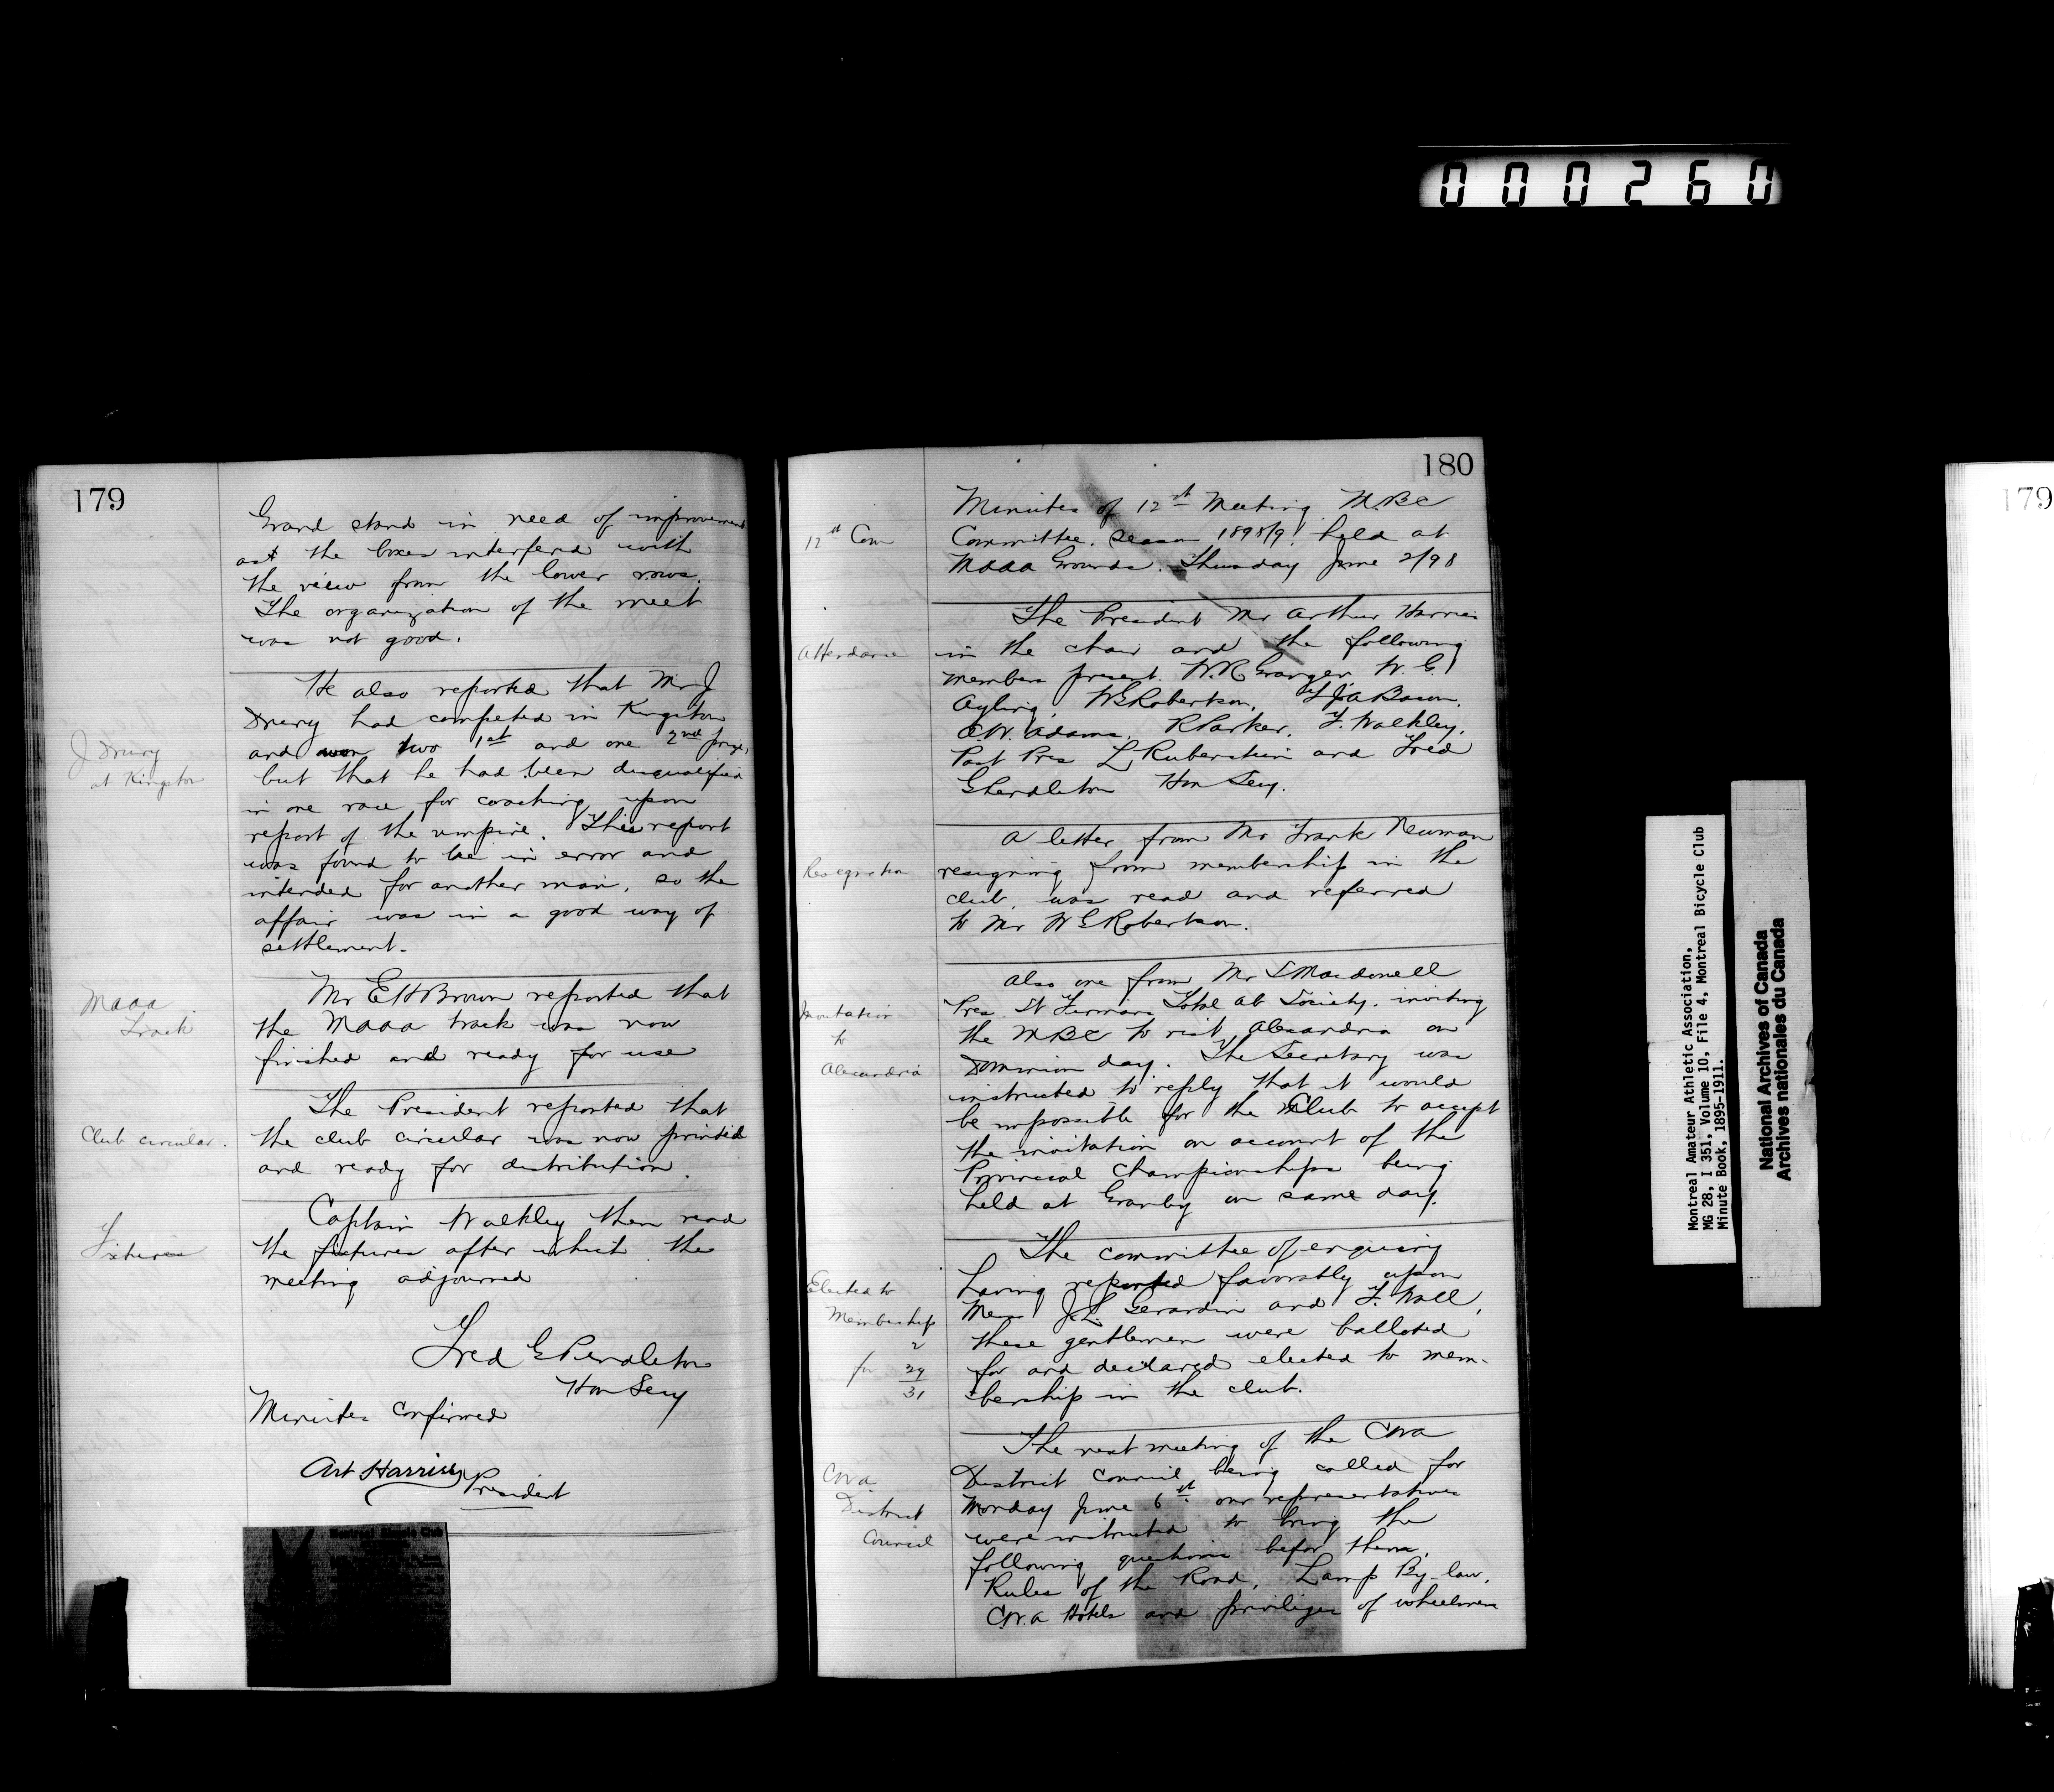 000260
179
Grand stand in need of improvement
as the boxes interfered with
the view from the lower rows.
The organization of the meet
was not good.
J Drury
at Kingston
He also reported that Mr J
Drury had competed in Kingston
and won two 1st and one 2nd prize,
but that he had been disqualified
in one race for coaching upon
report of the umpire. This report
was found to be in error and
intended for another man, so the
affair was in a good way of
settlement.
Maaa
Track
Mr E H Brown reported that
the Maaa track was now
finished and ready for use
Club circular.
The President reported that
the club circular was now printed
and ready for distribution.
Fixtures
Captain Walkley then read
the fixtures after which the
meeting adjourned
Fred G Pendleton
Hon Secy
Minutes Confirmed
Art Harries
President
Montreal Bicycle Club
180
12th Com
Minutes of 12th Meeting MBC
Committee. Season 1898/9. held at
Maaa Grounds. Thursday June 2/98
Attendance
The President Mr Arthur Harries
in the chair and the following
members present. W.R. Granger, W. G.
Ayling, W G Robertson, J A Bacon.
C.W. Adams. R Parker. F. Walkley,
Past Pres L Rubenstein and Fred
G Pendleton Hon Secy.
Resignation
A letter from Mr Frank Newman
resigning from membership in the
club, was read and referred
to Mr W G Robertson.
Invitation
to
Alexandria
Also one from Mr Macdonell
Pres. St Finnians Total Ab Society. inviting
the MBC to visit Alexandria on
Dominion day. The Secretary was
instructed to reply that it would
be impossible for the Club to accept
the invitation on account of the
Provincial Championships being
held at Granby on same day.
Elected to
Membership
2
for 29
31
The committee of enquiry
having reported favorably upon
Mess J.L. Gerardin and F. Wall,
these gentlemen were balloted
for and declared elected to mem-
bership in the club.
CWA
District
Council
The next meeting of the CWA
District Council being called for
Monday June 6th our representatives
were instructed to bring the
following questions before them,
Rules of the Road, Lamp By-law,
C.W.A Hotels and privileges of wheelmen
Montreal Amateur Athletic Association,
MG 28, I 351, Volume 10, File 4, Montreal Bicycle Club
Minute Book, 1895-1911.
National Archives of Canada
Archives nationales du Canada
179